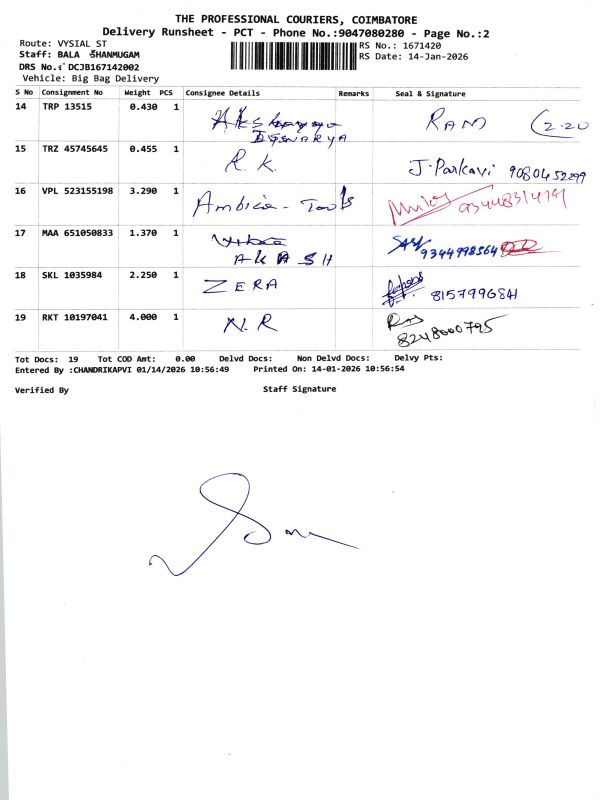 THE PROFESSIONAL COURIERS, COIMBATORE
Delivery Runsheet - PCT - Phone No.:9047080280 - Page No.:2
Route: VYSIAL ST
Staff: BALA SHANMUGAM
RS No.: 1671420
DRS No.: DCJB167142002
RS Date: 14-Jan-2026
Vehicle: Big Bag Delivery
S No Consignment No Weight PCS Consignee Details Remarks Seal & Signature
14 TRP 13515 0.430 1 RAM (2.20
AISHWARYA
15 TRZ 45745645 0.455 1 R.K. J.Parkavi 9080452299
16 VPL 523155198 3.290 1 Ambica - Tools
17 MAA 651050833 1.370 1
AKASH 9344998564
18 SKL 1035984 2.250 1 ZERA 8157996841
19 RKT 10197041 4.000 1 N.R Ram
8248000795
Tot Docs: 19 Tot COD Amt: 0.00 Delvd Docs: Non Delvd Docs: Delvy Pts:
Entered By :CHANDRIKAPVI 01/14/2026 10:56:49 Printed On: 14-01-2026 10:56:54
Verified By Staff Signature